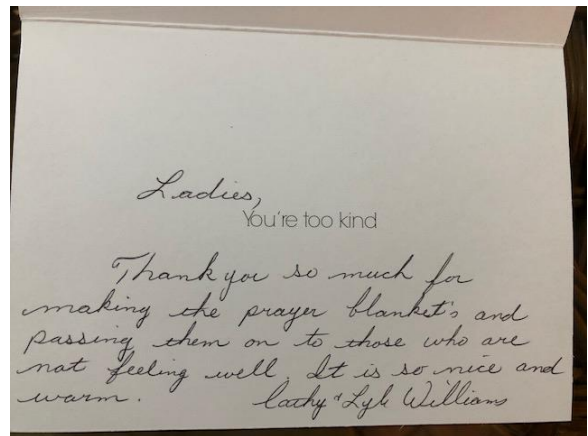 Ladies,
You're too kind
Thank you so much for
making the prayer blanket's and
passing them on to those who are
not feeling well. It is so nice and
warm. Cathy & Lyle Williams